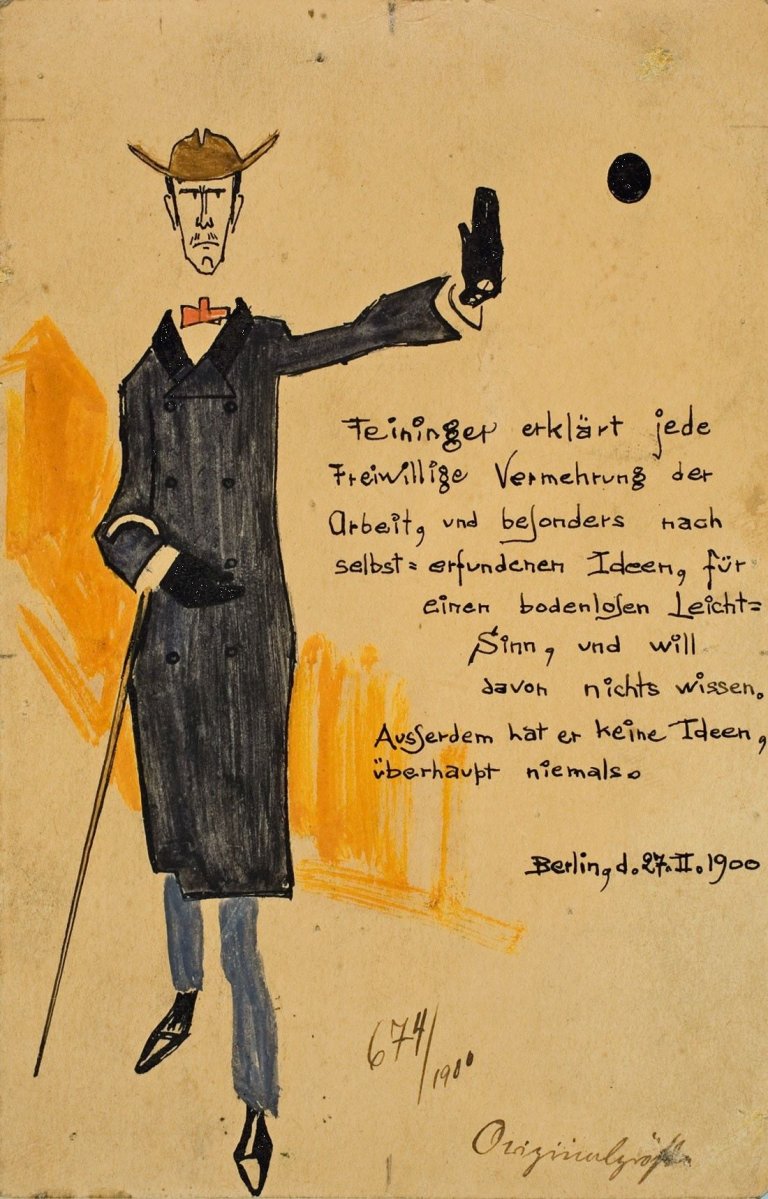 Feininger erklärt jede
Freiwillige Vermehrung der
Arbeit, und besonders nach
selbst= erfundenen Ideen, für
einen bodenlosen Leicht=
Sinn, und will
davon nichts wissen.
Ausserdem hat er keine Ideen,
überhaupt niemals.
Berlin, d. 27. II. 1900
674/1900
Originalgröße